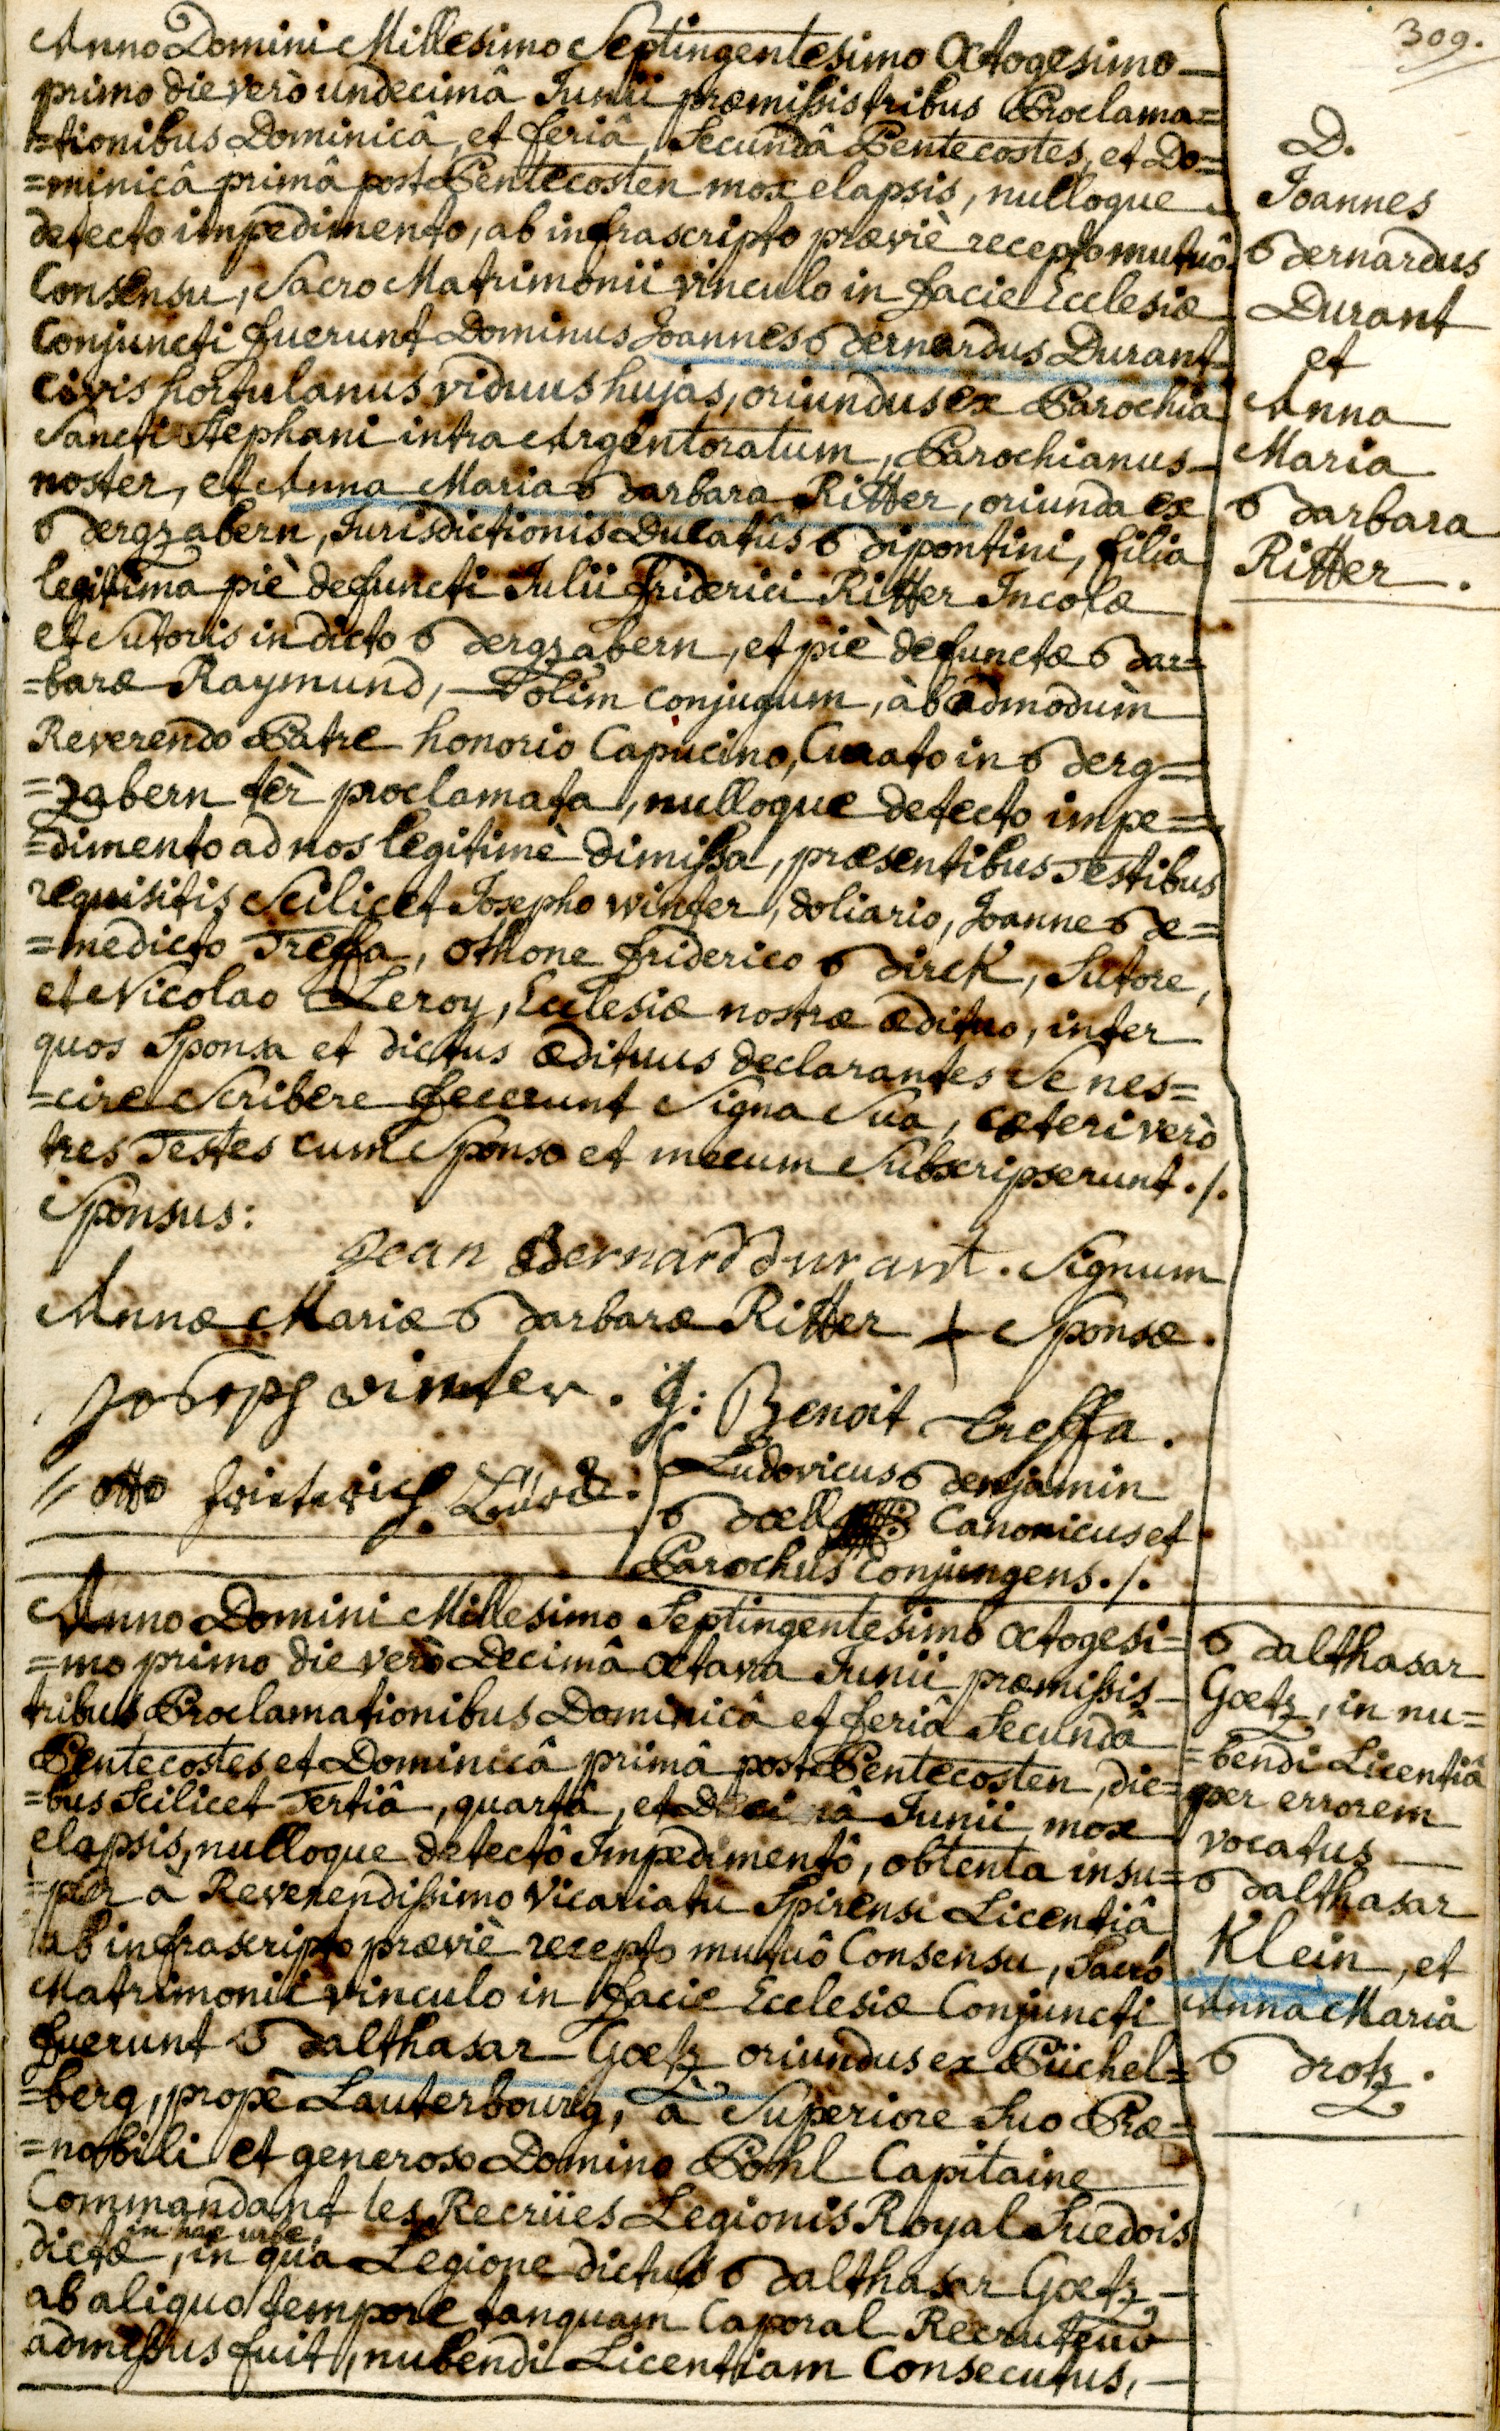 309.
Anno Domini Millesimo Septingentesimo Octogesimo
primo die verò undecimâ Junii præmissis tribus Proclama=
=tionibus Dominicâ, et feriâ Secundâ Pentecostes, et Do=
=minicâ primâ post Pentecosten mox elapsis, nulloque
detecto impedimento, ab infrascripto præviè recepto mutuô
Consensu, Sacro Matrimonii vinculo in facie Ecclesiæ
Conjuncti fuerunt Dominus Joannes Bernardus Durant
Civis hortulanus viduus hujas, oriundus ex Parochia
Sancti Stephani intra Argentoratum, Parochianus
noster, et Anna Maria Barbara Ritter, oriunda ex
Bergzabern, Jurisdictionis Ducatûs Bipontini, filia
legitima piè defuncti Julii Friderici Ritter Incolæ
et Sutoris in dicto Bergzabern, et piè defunctæ Bar=
=baræ Raymund, olim conjugum, àb admodùm
Reverendo Patre honorio Capucino, Curato in Berg=
=zabern tèr proclamata, nulloque detecto impe=
=dimento ad nos legitimè dimissa, præsentibus Testibus
requisitis Scilicet Josepho winter, doliario, Joanne Be=
=nedicto Treffa, Othone friderico Birck, Sutore,
et Nicolao Leroy, Ecclesiæ nostræ ædituo, inter
quos Sponsa et dictus ædituus declarantes Se nes=
=cire Scribere fecerunt Signa Sua, cæteri verò
tres Testes cum Sponso et mecum Subscripserunt ./.
Sponsus:
Jean Bernard durant. Signum
Annæ Mariæ Barbaræ Ritter + Sponsæ.
Joseph winter. J: Benoit treffa.
otto friterich Bürck.
Ludovicus Benjamin
Bœll Canonicus et
Parochus Conjungens ./.
D.
Joannes
Bernardus
Durant
et
Anna
Maria
Barbara
Ritter.
Anno Domini Millesimo Septingentesimo Octogesi=
=mo primo die verò Decimâ Octava Junii præmissis
tribus Proclamationibus Dominicâ et feriâ Secundâ
Pentecostes et Dominicâ primâ post Pentecosten, die=
=bus Scilicet Tertiâ, quartâ, et Decimâ Junii mox
elapsis, nulloque detectô Impedimentô, obtenta insu=
=per à Reverendissimo Vicariatu Spirensi Licentiâ
ab infrascripto præviè recepto mutuô Consensu, Sacrô
Matrimonii vinculo in facie Ecclesiæ Conjuncti
fuerunt Balthasar Gœtz oriundus ex Püchel=
=berg, propè Lauterbourg, à Superiore Suo Præ=
=nobili et generoso Domino Pohl Capitaine
Commandant les Recrües Legionis Royal Suedois
in hac urbe,
dictæ, in qua Legione dictus Balthasar Gœtz,
ab aliquo tempore tanquam Caporal Recruteur
admissus fuit, nubendi Licentiam Consecutus,
Balthasar
Gœtz, in nu=
=bendi Licentiâ
per errorem
vocatus
Balthasar
Klein, et
Anna Maria
Brotz.